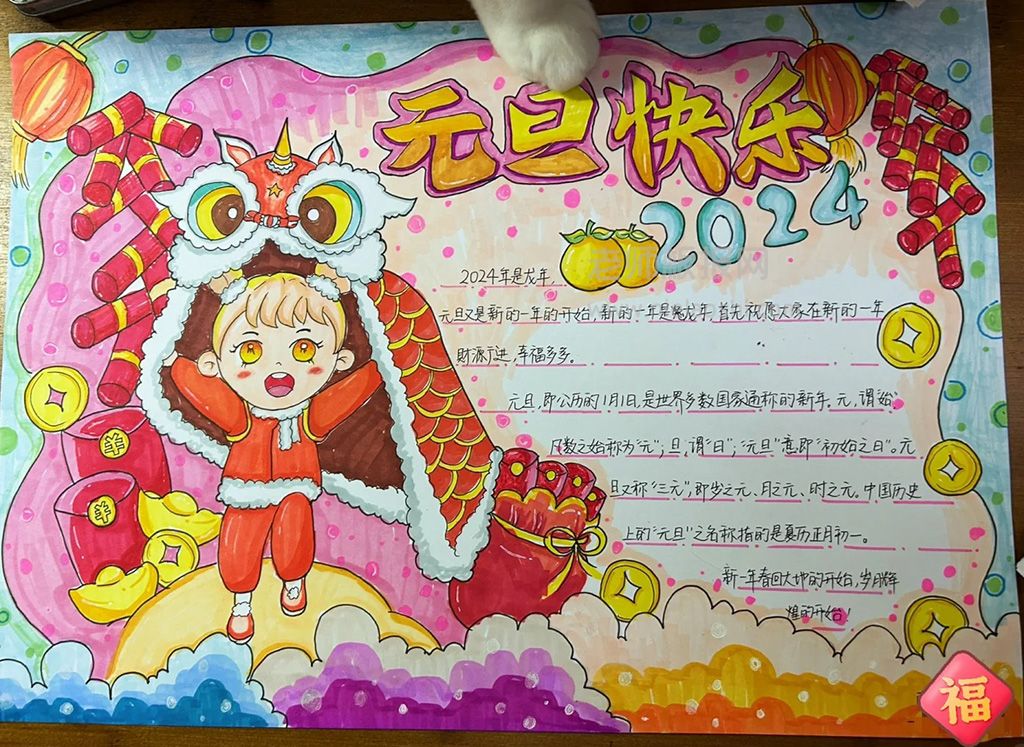 元旦快乐
2024
2024年是龙年,
元旦又是新的一年的开始,新的一年是龙年,首先祝愿大家在新的一年
财源广进,幸福多多。
元旦,即公历的1月1日,是世界多数国家通称的新年,元,谓"始"
凡数之始称为"元";旦,谓"日";"元旦"意即"初始之日"。元
旦又称"三元",即岁之元、月之元、时之元,中国历史
上的"元旦"之名称指的是夏历正月初一。
新一年春回大地的开始,岁月辉
煌的开始!
羊
羊
福